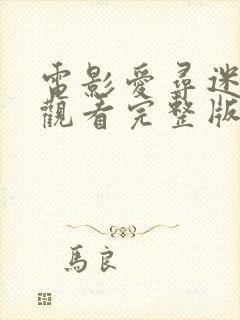 電影愛尋迷
觀看完整版
馬良